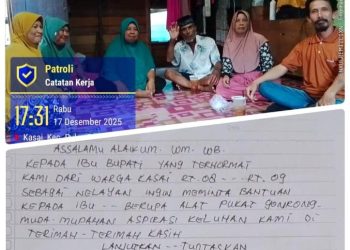 Patroli
Catatan Kerja
17:31
Rabu
17 Desember 2025
Kasai, Kec.
ASSALAMU ALAIKUM. WM. WB.
KEPADA IBU BUPATI YANG TERHORMAT
KAMI DARI WARGA KASAI RT. 08 --- RT. 09
SEBAGAI NELAYAN INGIN MEMINTA BANTUAN
KEPADA IBU -- BERUPA ALAT PUKAT GONRONG.
MUDA-MUDAHAN ASPIRASI KELUHAN KAMI DI
TERIMAH - TERIMAH KASIH
LANJUTKAN - TUNTASKAN